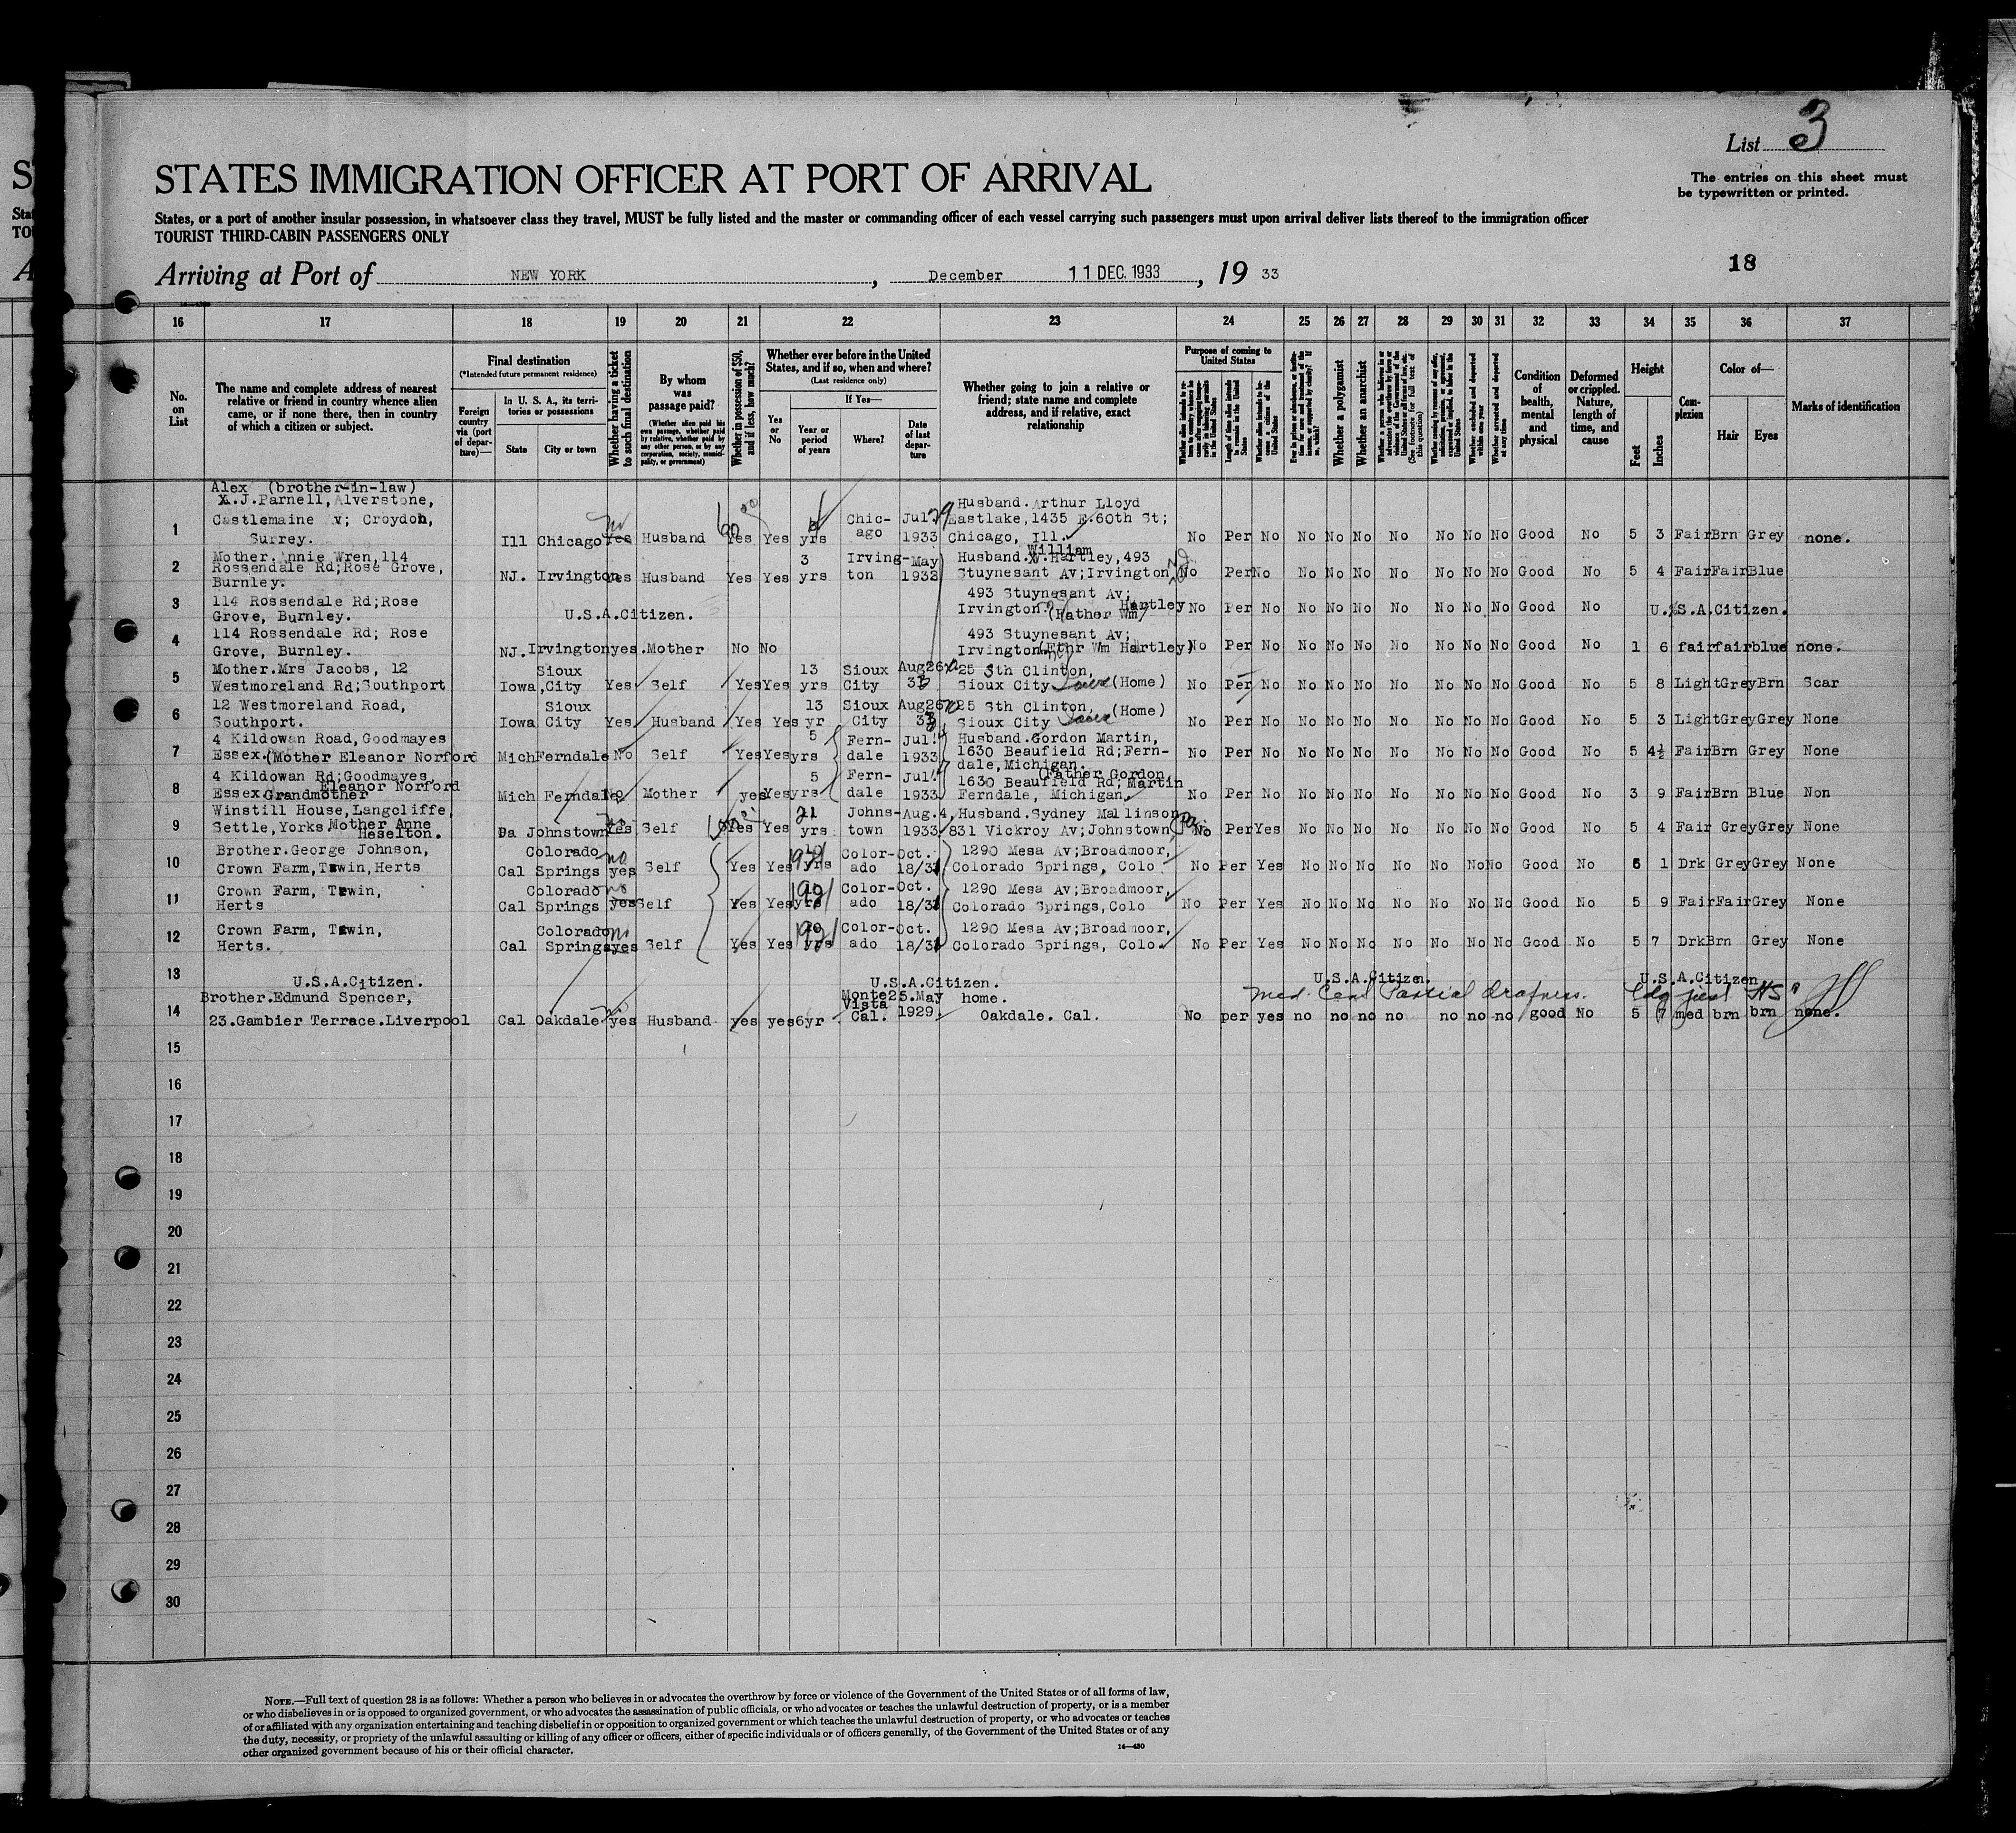 List 3
STATES IMMIGRATION OFFICER AT PORT OF ARRIVAL
The entries on this sheet must
be typewritten or printed.
States, or a port of another insular possession, in whatsoever class they travel, MUST be fully listed and the master or commanding officer of each vessel carrying such passengers must upon arrival deliver lists thereof to the immigration officer
TOURIST THIRD-CABIN PASSENGERS ONLY
Arriving at Port of NEW YORK, December 11 DEC. 1933, 19 33
18
16 17 18 19 20 21 22 23 24 25 26 27 28 29 30 31 32 33 34 35 36 37
No. on List
The name and complete address of nearest relative or friend in country whence alien came, or if none there, then in country of which a citizen or subject.
Final destination
(*Intended future permanent residence)
Foreign country via (port of departure)—
In U. S. A., its territories or possessions
State
City or town
Whether having a ticket to such final destination
By whom was passage paid?
(Whether alien paid his own passage, whether paid by relative, whether paid by any other person, or by any corporation, society, municipality, or government)
Whether in possession of $50, and if less, how much?
Whether ever before in the United States, and if so, when and where?
(Last residence only)
Yes or No
If Yes—
Year or period of years
Where?
Date of last departure
Whether going to join a relative or friend; state name and complete address, and if relative, exact relationship
Purpose of coming to United States
Length of time alien intends to remain in the United States
Whether alien intends to become a citizen of the United States
Whether a polygamist
Whether an anarchist
(See footnote for full text of this question)
Whether arrested and deported at any time
Condition of health, mental and physical
Deformed or crippled. Nature, length of time, and cause
Height
Feet
Inches
Complexion
Color of—
Hair
Eyes
Marks of identification
1 Alex (brother-in-law)
X.J.Parnell, Alverstone,
Castlemaine Av; Croydon,
Surrey. Ill Chicago Yes no Husband Yes 60 Yes yrs Chicago Jul. 29 1933 Husband. Arthur Lloyd
Eastlake, 1435 E.60th St;
Chicago, Ill. No Per No No No No No No No No Good No 5 3 Fair Brn Grey none.
2 Mother. Annie Wren, 114
Rossendale Rd; Rose Grove,
Burnley. NJ. Irvington yes Husband Yes Yes 3 yrs Irvington May 1932 Husband. William
W. Hartley, 493
Stuynesant Av; Irvington No Per No No No No No No No No Good No 5 4 Fair Fair Blue
3 114 Rossendale Rd; Rose
Grove, Burnley. U.S.A.Citizen. 493 Stuynesant Av;
Irvington. (Father Wm Hartley) No Per No No No No No No No No Good No U.S.A.Citizen.
4 114 Rossendale Rd; Rose
Grove, Burnley. NJ. Irvington yes. Mother No No 493 Stuynesant Av;
Irvington (Fthr Wm Hartley) No Per No No No No No No No No Good No 1 6 fair fair blue none.
5 Mother. Mrs Jacobs, 12
Westmoreland Rd; Southport Iowa, Sioux City Yes Self Yes Yes 13 yrs Sioux City Aug 26 33 25 Sth Clinton,
Sioux City Iowa (Home) No Per No No No No No No No No Good No 5 8 Light Grey Brn Scar
6 12 Westmoreland Road,
Southport. Iowa Sioux City Yes. Husband Yes Yes 13 yr Sioux City Aug 26 33 25 Sth Clinton,
Sioux City Iowa (Home) No Per No No No No No No No No Good No 5 3 Light Grey Grey None
7 4 Kildowan Road, Goodmayes
Essex. (Mother Eleanor Norford Mich Ferndale No Self Yes Yes 5 yrs Ferndale Jul. 1933 Husband. Gordon Martin,
1630 Beaufield Rd; Ferndale, Michigan. No Per No No No No No No No No Good No 5 4½ Fair Brn Grey None
8 4 Kildowan Rd; Goodmayes
Essex. Grandmother Eleanor Norford Mich Ferndale No Mother yes Yes 5 yrs Ferndale Jul. 1933 (Father Gordon Martin
1630 Beaufield Rd;
Ferndale, Michigan. No Per No No No No No No No No Good No 3 9 Fair Brn Blue Non
9 Winstill House, Langcliffe,
Settle, Yorks. Mother Anne
Heselton. Pa Johnstown Yes Self Yes Yes 21 yrs Johnstown Aug. 4, 1933 Husband. Sydney Mallinson
831 Vickroy Av; Johnstown Pa. No Per Yes No No No No No No No Good No 5 4 Fair Grey Grey None
10 Brother. George Johnson,
Crown Farm, Tewin, Herts Cal Colorado Springs no yes Self Yes Yes 1921 yrs Colorado Oct. 18/31 1290 Mesa Av; Broadmoor,
Colorado Springs, Colo No Per Yes No No No No No No No Good No 5 1 Drk Grey Grey None
11 Crown Farm, Tewin,
Herts Cal Colorado Springs no yes Self Yes Yes 1921 yrs Colorado Oct. 18/31 1290 Mesa Av; Broadmoor,
Colorado Springs, Colo No Per Yes No No No No No No No Good No 5 9 Fair Fair Grey None
12 Crown Farm, Tewin,
Herts. Cal Colorado Springs no yes Self Yes Yes 1921 yrs Colorado Oct. 18/31 1290 Mesa Av; Broadmoor,
Colorado Springs, Colo. No Per Yes No No No No No No No Good No 5 7 Drk Brn Grey None
13 U.S.A.Citizen. U.S.A.Citizen. U.S.A.Citizen. U.S.A.Citizen
Med. Cert Partial deafness.
14 Brother. Edmund Spencer,
23. Gambier Terrace. Liverpool Cal Oakdale yes Husband yes yes 6yr Monte Vista Cal. 25. May 1929. home.
Oakdale. Cal. No per yes no no no no no no no good No 5 7 med brn brn none.
15
16
17
18
19
20
21
22
23
24
25
26
27
28
29
30
NOTE.—Full text of question 28 is as follows: Whether a person who believes in or advocates the overthrow by force or violence of the Government of the United States or of all forms of law,
or who disbelieves in or is opposed to organized government, or who advocates the assassination of public officials, or who advocates or teaches the unlawful destruction of property, or is a member
of or affiliated with any organization entertaining and teaching disbelief in or opposition to organized government or which teaches the unlawful destruction of property, or who advocates or teaches
the duty, necessity, or propriety of the unlawful assaulting or killing of any officer or officers, either of specific individuals or of officers generally, of the Government of the United States or of any
other organized government because of his or their official character.
14—430